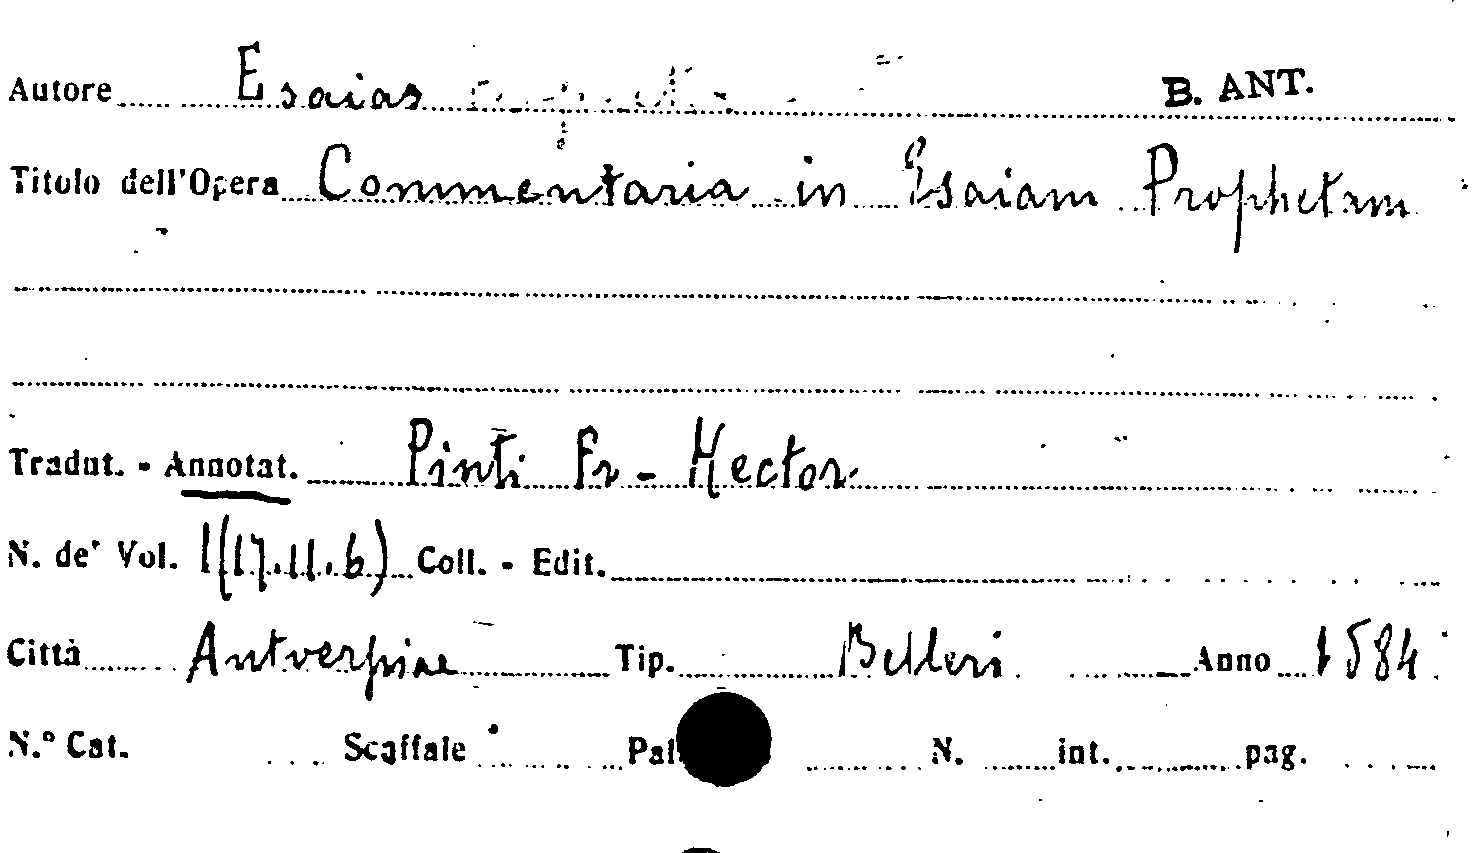 Autore Esaias B. ANT.
Titolo dell'Opera Commentaria in Esaiam Prophetam
Tradut. - Annotat. Pinti Fr - Hector
N. de' Vol. 1 (17.11.6) Coll. - Edit.
Città Antverpiae Tip. Belleri Anno 1584
N.º Cat. Scaffale Pal N. int. pag.